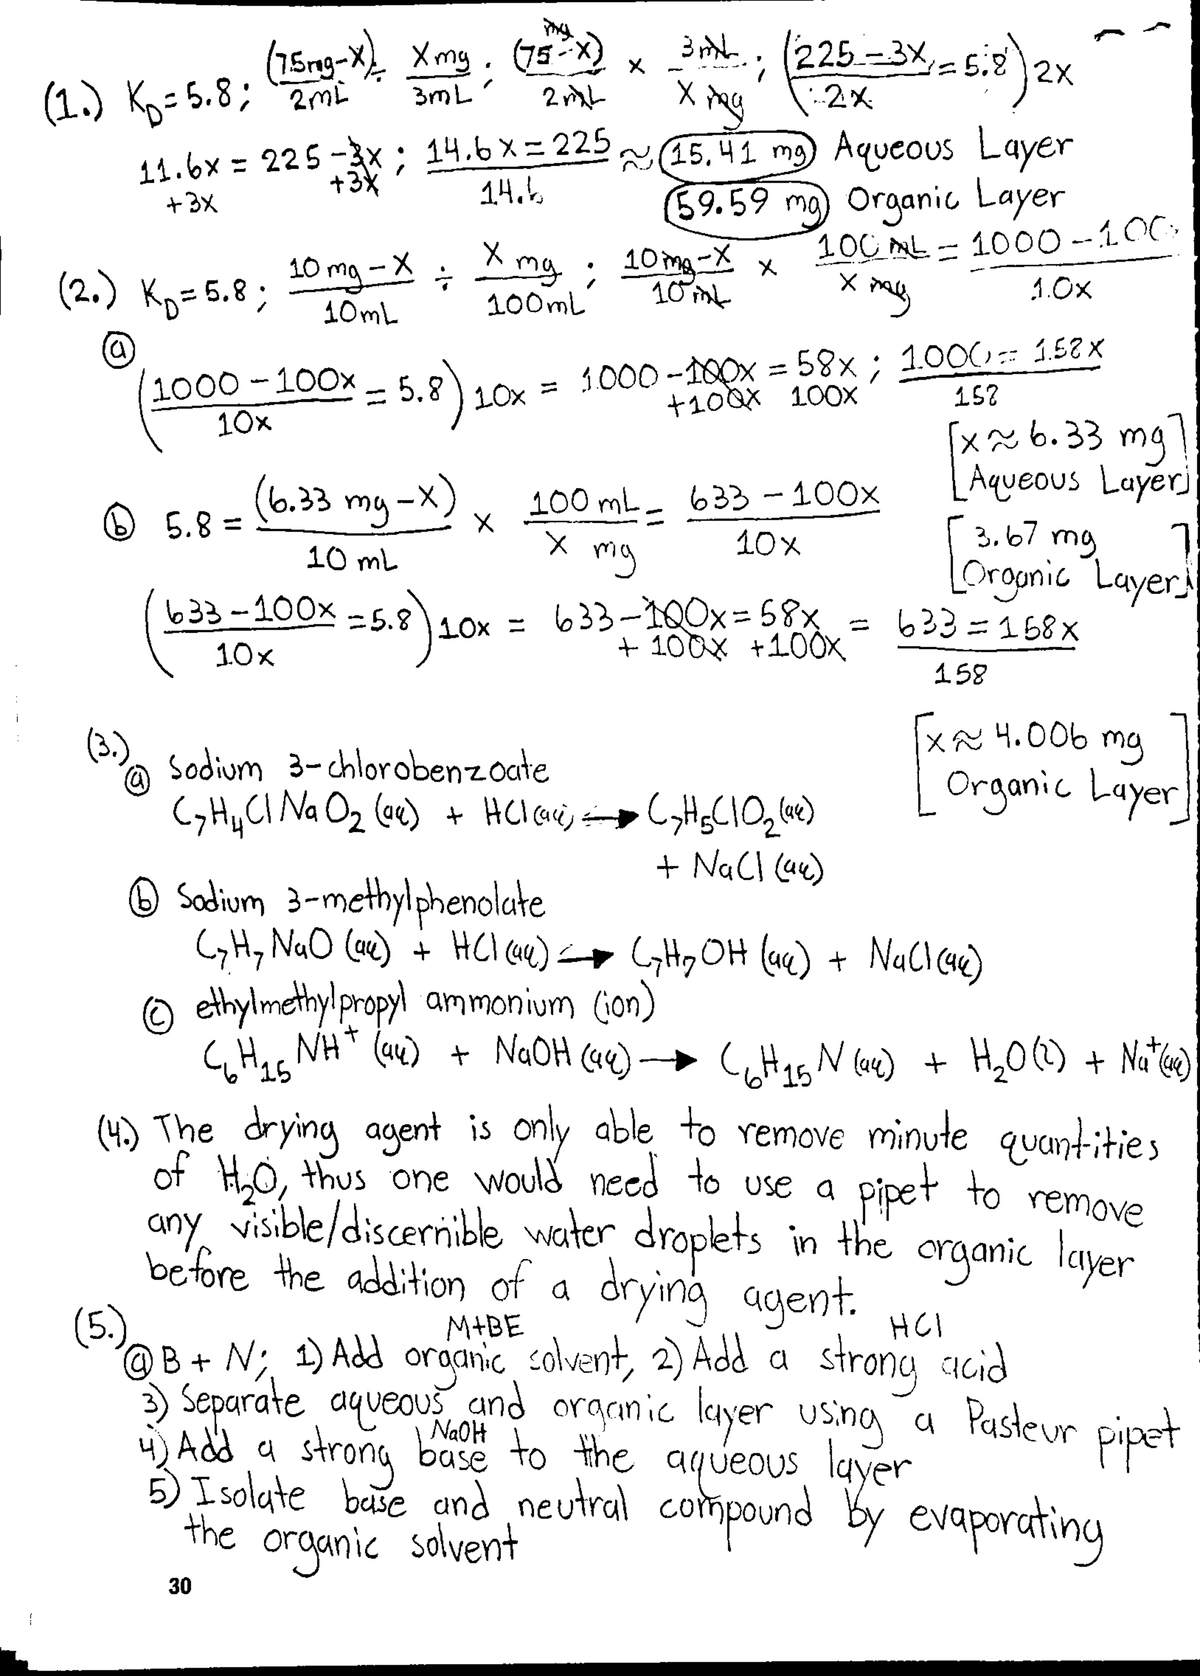 (1.) K_D = 5.8; (75mg-X)/2mL ÷ X mg/3mL; (75-X) mg/2mL × 3mL/X mg; (225-3X/2X = 5.8) 2X
11.6x = 225 - 3x; 14.6x = 225 ≈ 15.41 mg Aqueous Layer
+3x +3x 14.6 59.59 mg Organic Layer
(2.) K_D = 5.8; 10mg-X/10mL ÷ X mg/100mL; 10mg-X/10mL × 100mL/X mg = 1000-100x/10x
(a)
(1000-100x/10x = 5.8) 10x = 1000-100x = 58x; 1000 = 158x
+100x 100x 158
[x ≈ 6.33 mg
Aqueous Layer]
(b) 5.8 = (6.33 mg-X)/10 mL × 100 mL/X mg = 633-100x/10x
[3.67 mg
Organic Layer]
(633-100x/10x = 5.8) 10x = 633-100x = 58x = 633 = 158x
+100x +100x 158
[x ≈ 4.006 mg
Organic Layer]
(3.)
(a) Sodium 3-chlorobenzoate
C7H4ClNaO2 (aq) + HCl (aq) ⇌ C7H5ClO2 (aq)
+ NaCl (aq)
(b) Sodium 3-methylphenolate
C7H7NaO (aq) + HCl (aq) ⇌ C7H7OH (aq) + NaCl (aq)
(c) ethylmethylpropyl ammonium (ion)
C6H15NH+ (aq) + NaOH (aq) → C6H15N (aq) + H2O (l) + Na+ (aq)
(4.) The drying agent is only able to remove minute quantities
of H2O, thus one would need to use a pipet to remove
any visible/discernible water droplets in the organic layer
before the addition of a drying agent.
(5.) MtBE HCl
(a) B + N; 1) Add organic solvent, 2) Add a strong acid
3) Separate aqueous and organic layer using a Pasteur pipet
NaOH
4) Add a strong base to the aqueous layer
5) Isolate base and neutral compound by evaporating
the organic solvent
30